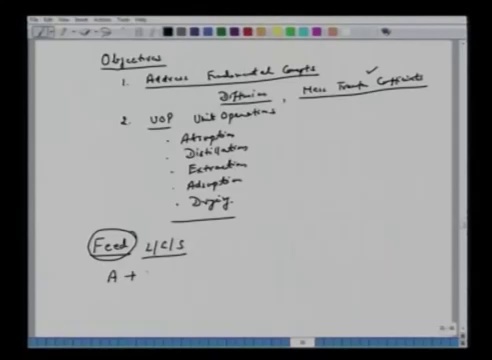 Objectives
1. Address Fundamental Concepts
Diffusion, Mass Transfer Coefficients
2. UOP Unit Operations
• Absorption
• Distillation
• Extraction
• Adsorption
• Drying
Feed L/G/S
A +